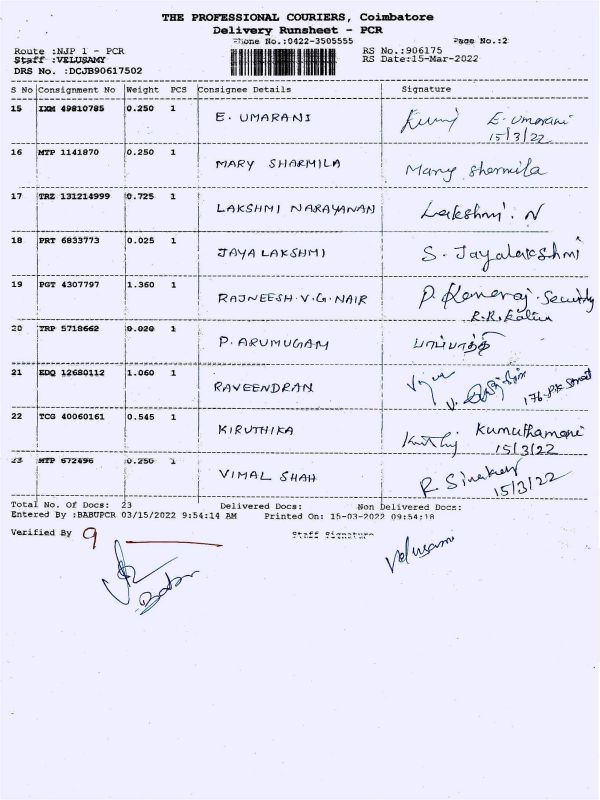 THE PROFESSIONAL COURIERS, Coimbatore
Delivery Runsheet - PCR
Phone No.:0422-3505555 Page No.:2
Route :NJP 1 - PCR RS No.:906175
Staff :VELUSAMY RS Date:15-Mar-2022
DRS No. :DCJB90617502
S No Consignment No Weight PCS Consignee Details Signature
15 IXM 49810785 0.250 1 E. UMARANI E. Umarani
15/3/22
16 MTP 1141870 0.250 1 MARY SHARMILA Mary Shermila
17 TRZ 131214999 0.725 1 LAKSHMI NARAYANAN Lakshmi. N
18 PRT 6833773 0.025 1 JAYA LAKSHMI S. Jayalakshmi
19 PGT 4307797 1.360 1 RAJNEESH.V.G.NAIR Security
20 TRP 5718662 0.020 1 P. ARUMUGAM
21 EDQ 12680112 1.060 1 RAVEENDRAN
22 TCG 40060161 0.545 1 KIRUTHIKA Kumuthamani
15/3/22
23 MTP 672496 0.250 1 VIMAL SHAH
15/3/22
Total No. Of Docs: 23 Delivered Docs: Non Delivered Docs:
Entered By :BABUPCR 03/15/2022 9:54:14 AM Printed On: 15-03-2022 09:54:18
Verified By 9 Staff Signature
Velusami
Babu